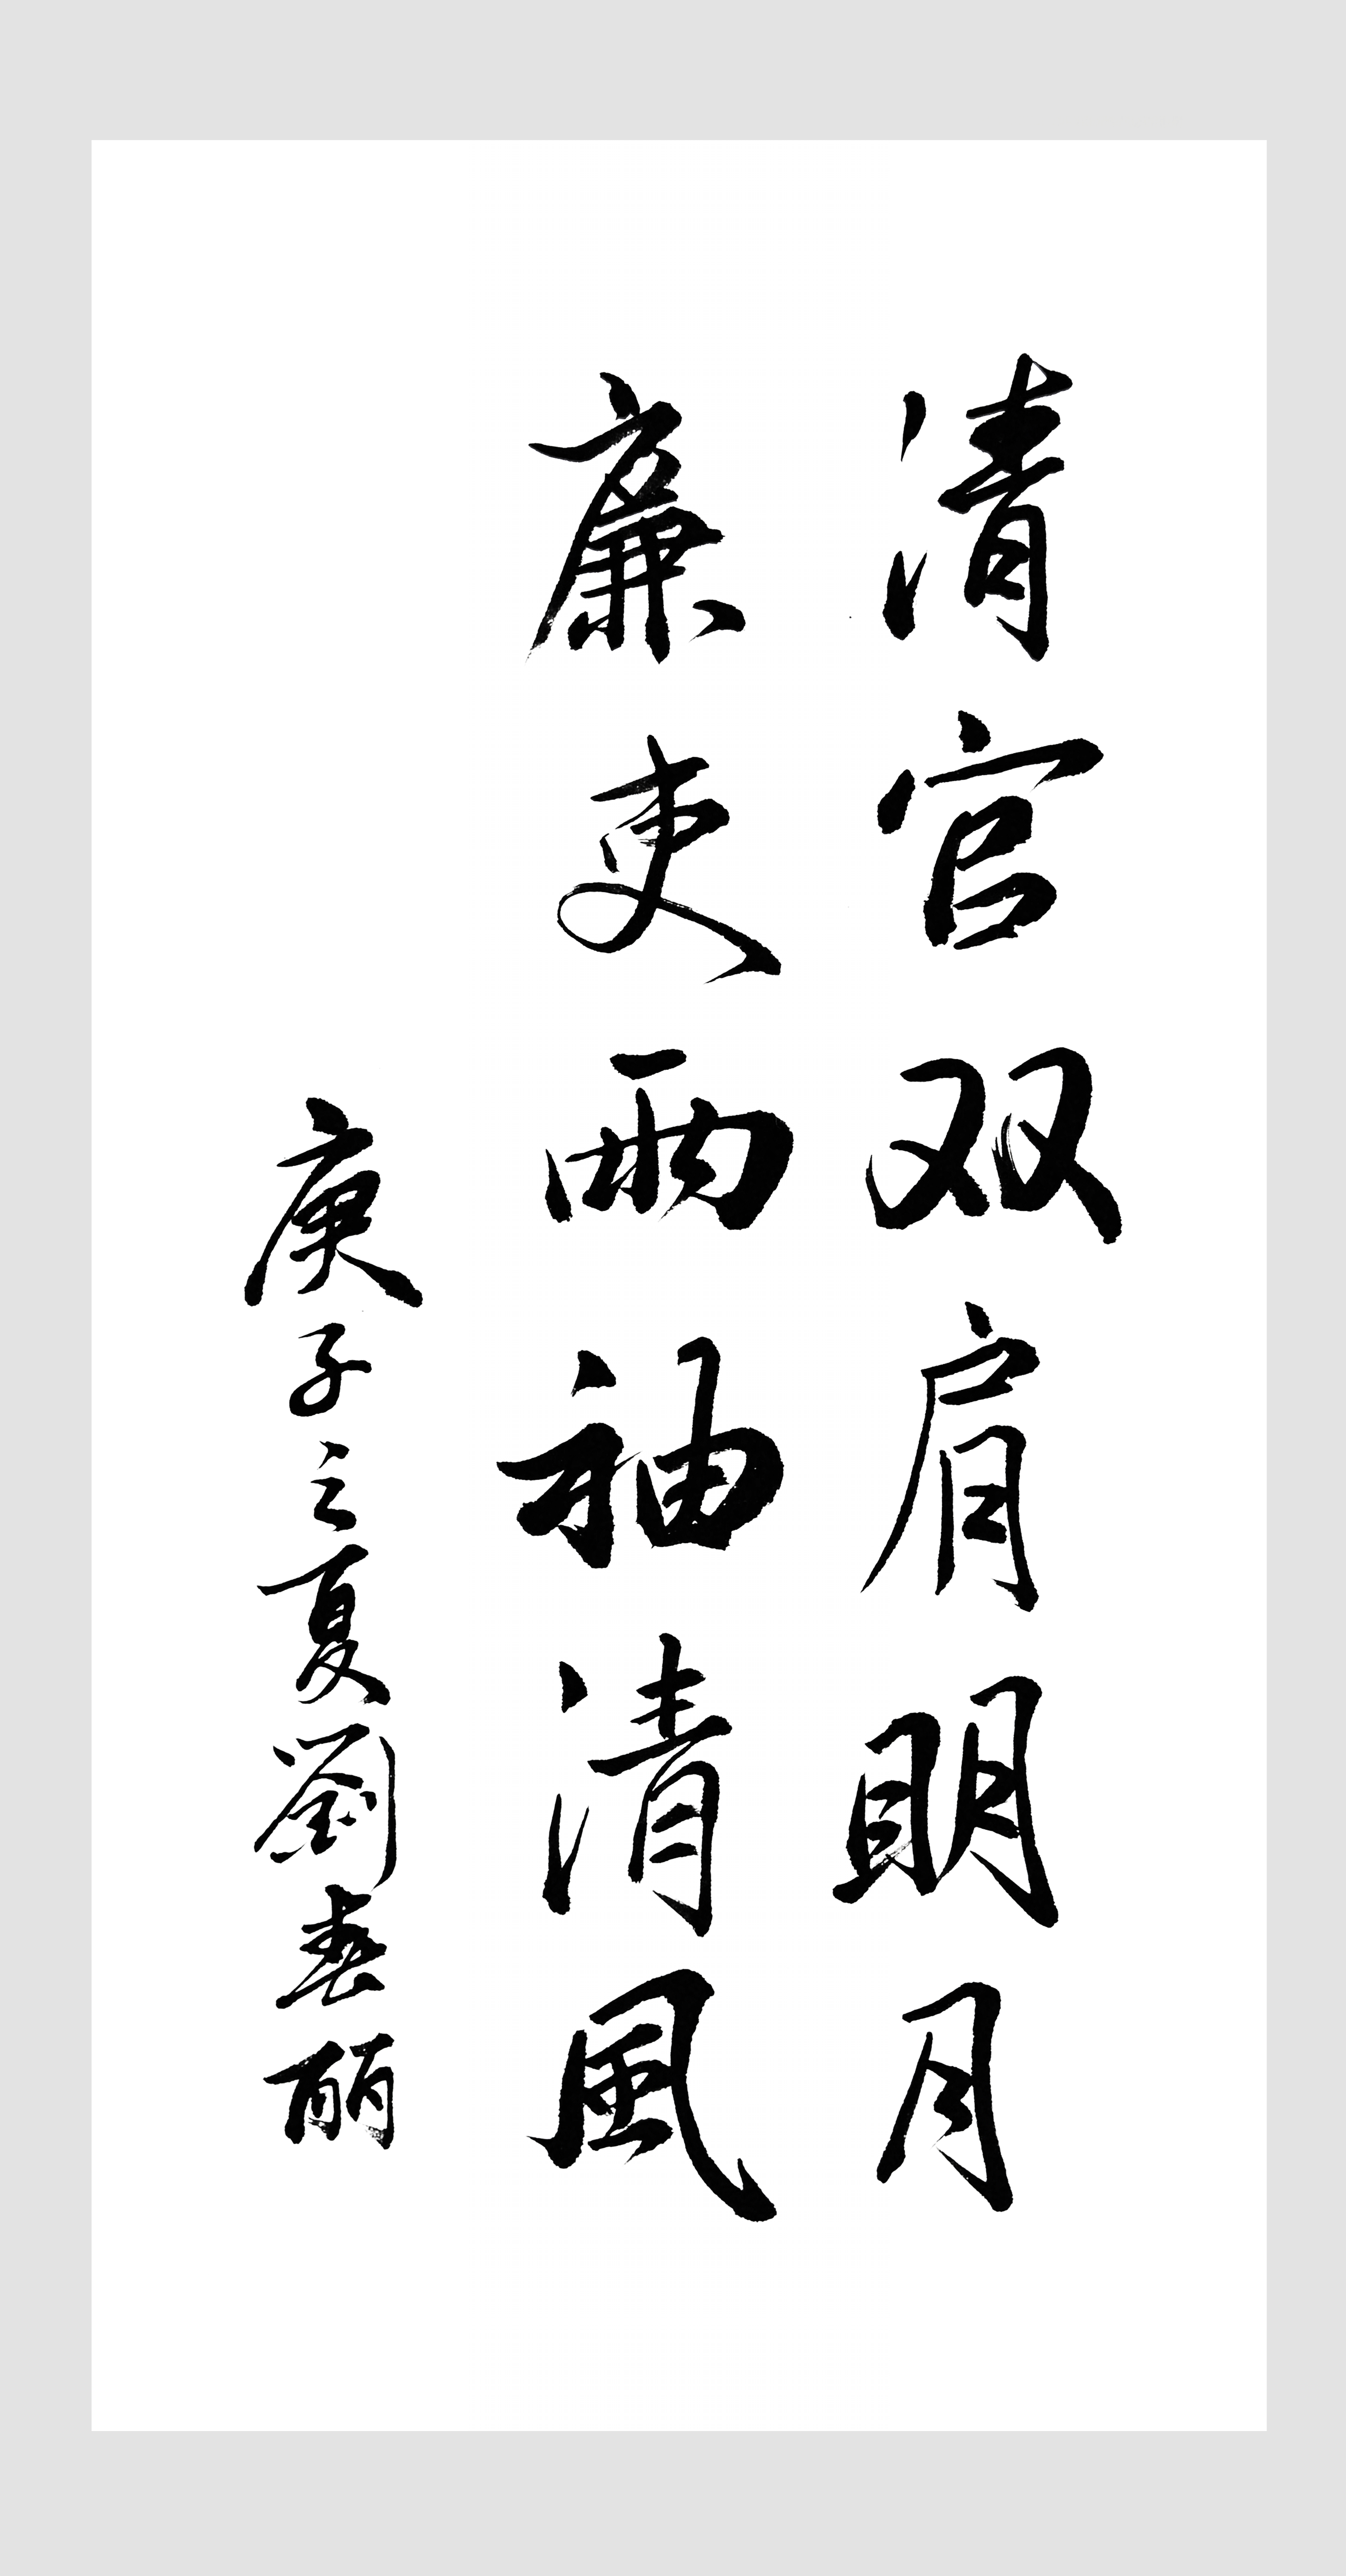 清官双肩明月
廉吏兩袖清風
庚子之夏劉春丽